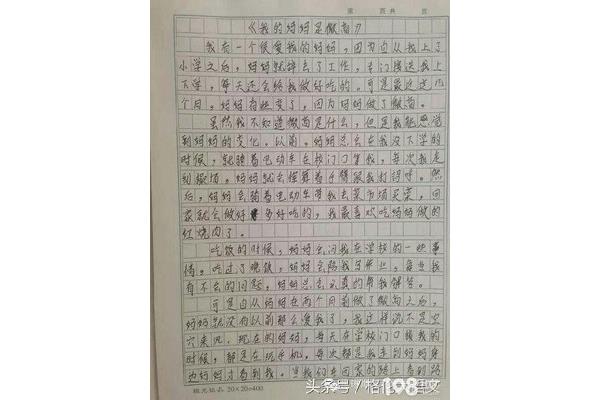 第 页 共 页
《我的妈妈是微商》
我有一个很爱我的妈妈,因为自从我上了
小学之后,妈妈就辞去了工作,专门接送我上
下学,每天还会给我做好吃的。可是最近这几
个月,妈妈有些变了,因为妈妈做了微商。
虽然我不知道微商是什么,但是我能感觉
到妈妈的变化。以前,妈妈总会在我没下学的
时候,就骑着电动车在校门口等我,每次我走
到校门,妈妈就会挥舞着手跟我打招呼。然
后,妈妈会骑着电动车带我去菜市场买菜,回
家就会做好多好吃的,我最喜欢吃妈妈做的
红烧肉了。
吃饭的时候,妈妈会问我在学校的一些事
情。吃过了晚饭,妈妈会陪我写作业,每当我
有不会的问题,妈妈总会认真的帮我解答。
可是自从妈妈在两个月前做了微商之后,
妈妈就没有以前那么爱我了,我这样说不是空
穴来风。现在的妈妈,每天在学校门口接我的
时候,都是在玩手机,每次都是我走到妈妈身
边妈妈才看到我。当我们在回家的路上看到路
20×20=400
头条号/格
语文